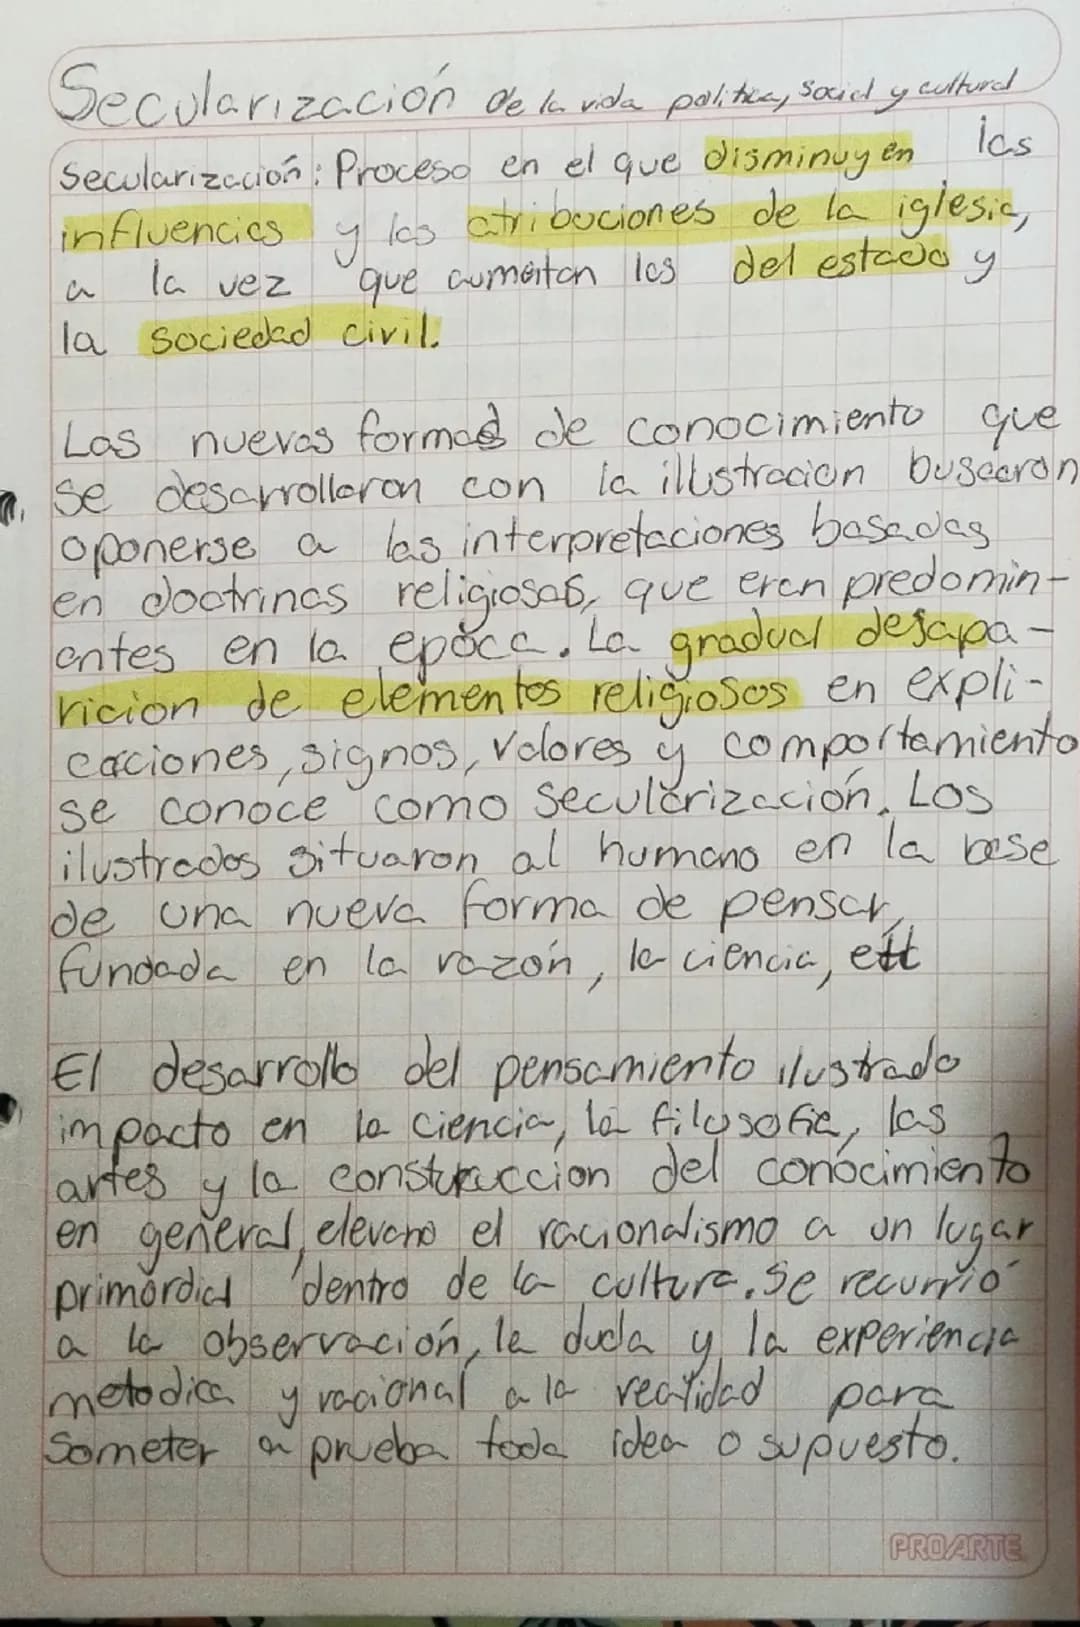 Secularización de la vida politica, social y cultural
Secularización: Proceso en el que disminuyen las
influencias y las atribuciones de la iglesia,
a la vez que aumentan las del estado y
la sociedad civil.
Las nuevas formas de conocimiento que
se desarrollaron con la ilustracion buscaron
oponerse a las interpretaciones basadas
en doctrinas religiosas, que eran predomin-
antes en la época. La gradual desapa-
ricion de elementos religiosos en expli-
caciones, signos, valores y comportamiento
se conoce como secularización. Los
ilustrados situaron al humano en la base
de una nueva forma de pensar,
fundada en la razón, la ciencia, ett
El desarrollo del pensamiento ilustrado
impacto en la ciencia, la filosofia, las
artes y la construccion del conocimiento
en general, elevano el racionalismo a un lugar
primordial dentro de la cultura. Se recurrió
a la observación, la duda y la experiencia
metodica y racional a la realidad para
someter a prueba toda idea o supuesto.
PROARTE